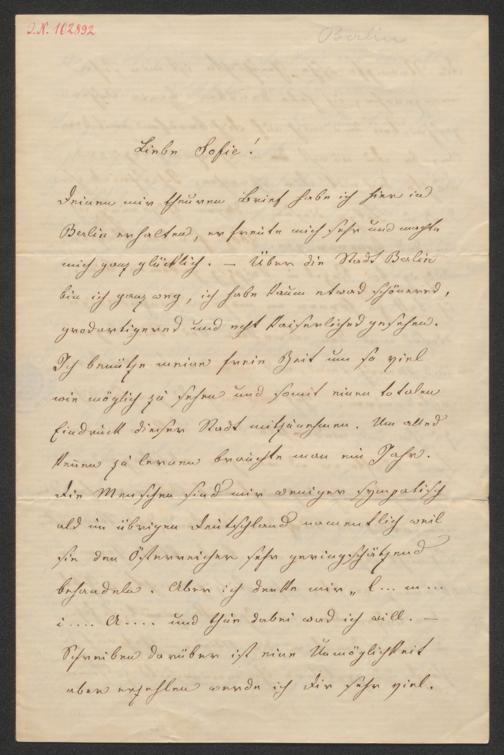 J.N. 102892
Berlin
Liebe Sofie!
Deinen mir theuren Brief habe ich hier in
Berlin erhalten, er freute mich sehr und machte
mich ganz glücklich. — Über die Stadt Berlin
bin ich ganz weg, ich habe kaum etwas schöneres,
großartigeres und echt kaiserliches gesehen.
Ich benütze meine freie Zeit um so viel
wie möglich zu sehen und somit einen totalen
Eindruck dieser Stadt mitzunehmen. Um alles
kennen zu lernen brauchte man ein Jahr.
Die Menschen sind mir weniger sympatisch
als im übrigen Deutschland namentlich weil
sie den Österreicher sehr geringschätzend
behandeln. Aber ich denke mir „l... m...
i.... A.... und thue dabei was ich will. —
Schreiben darüber ist eine Unmöglichkeit
aber erzehlen werde ich Dir sehr viel.